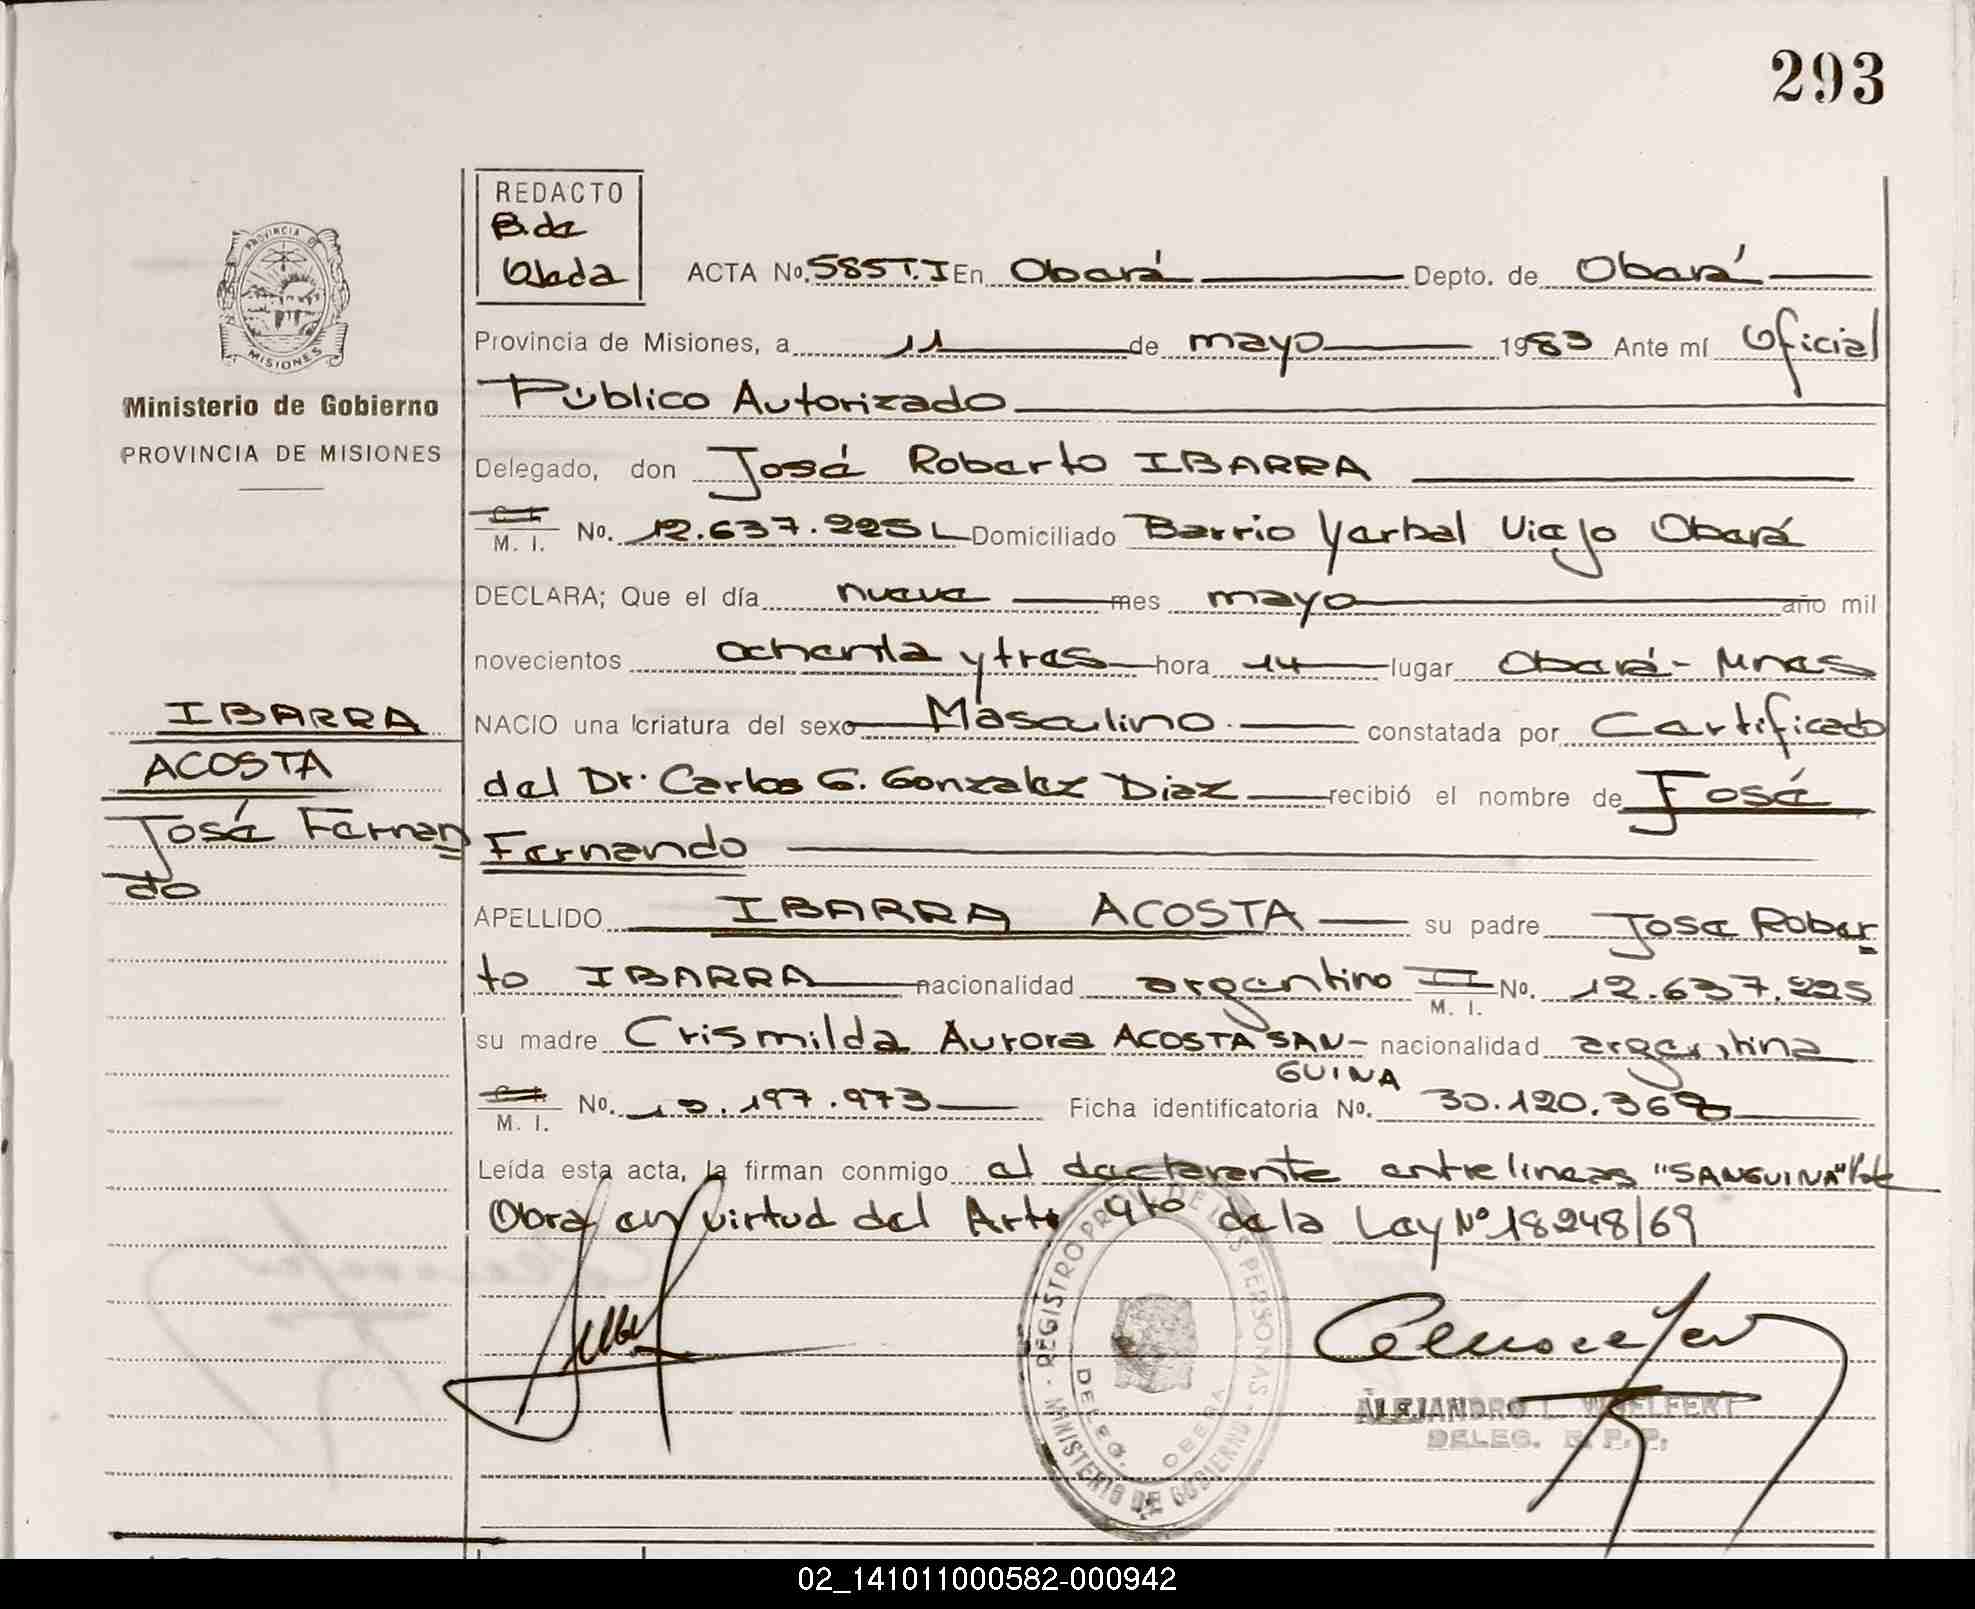 293
REDACTO
B. de
Ojeda
ACTA No. 585 T. I En Oberá Depto. de Oberá
Provincia de Misiones, a 11 de mayo 1983 Ante mí Oficial
Público Autorizado
Delegado, don José Roberto IBARRA
C. I. M. I. No. 12.637.225 Domiciliado Barrio Yerbal Viejo Oberá
DECLARA; Que el día nueve mes mayo año mil
novecientos ochenta y tres hora 14 lugar Oberá - Mnes
NACIO una criatura del sexo Masculino constatada por Certificado
del Dr. Carlos G. Gonzalez Diaz recibió el nombre de José
Fernando
APELLIDO IBARRA ACOSTA su padre Jose Rober
to IBARRA nacionalidad argentino M. I. No. 12.637.225
su madre Crismilda Aurora ACOSTA SAN- nacionalidad argentina
GUINA
C. I. M. I. No. 10.197.973 Ficha identificatoria No. 30.120.368
Leída esta acta, la firman conmigo el declarante entrelineas "SANGUINA" Vale
Obra en virtud del Arto 4to de la Ley Nº 18248/69
PROVINCIA DE
MISIONES
Ministerio de Gobierno
PROVINCIA DE MISIONES
IBARRA
ACOSTA
José Fernan
do
REGISTRO PROV. DE LAS PERSONAS
MINISTERIO DE GOBIERNO
DELEG. OBERA
ALEJANDRO L. WOELFERT
DELEG. R. P. P.
02_141011000582-000942